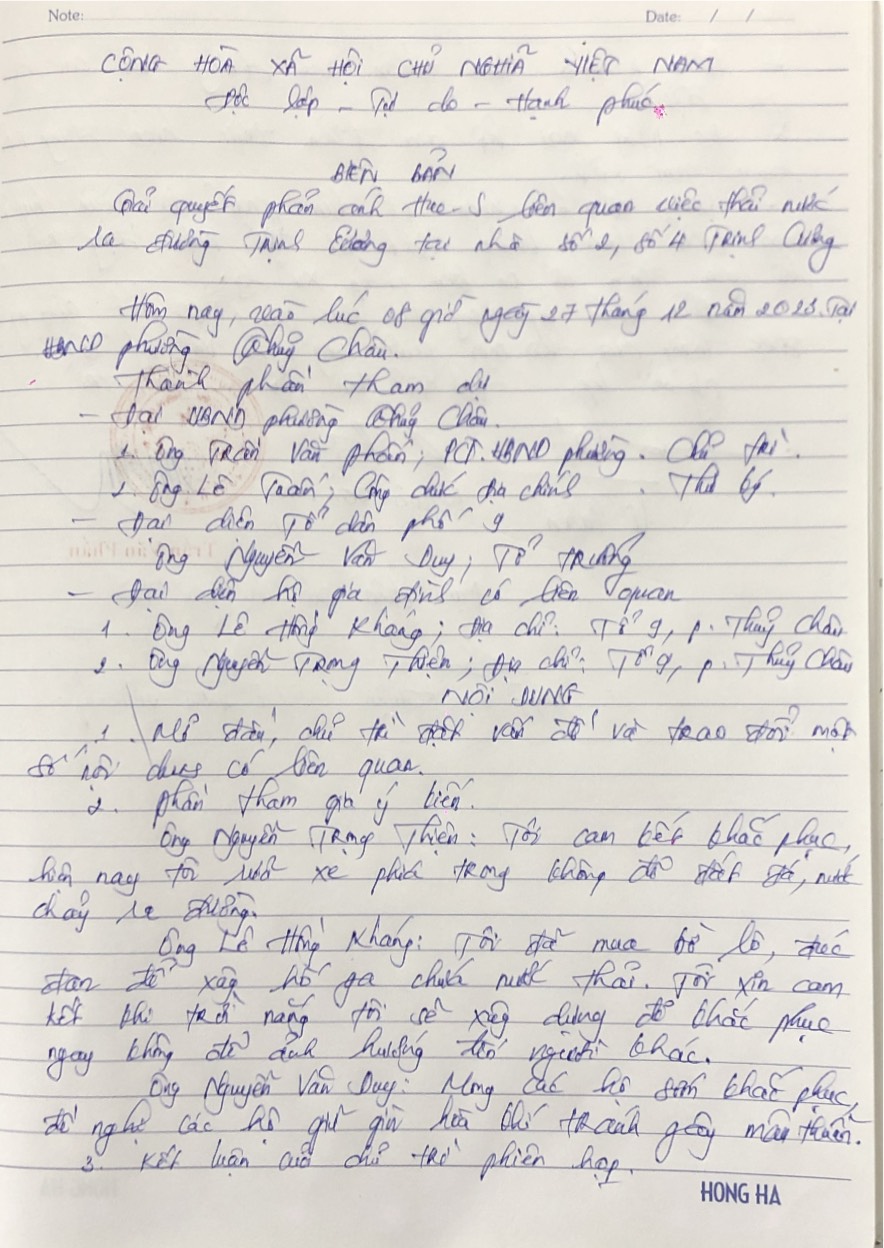 Note: Date: / /
CỘNG HÒA XÃ HỘI CHỦ NGHĨA VIỆT NAM
Độc lập - Tự do - Hạnh phúc
BIÊN BẢN
Giải quyết phản ánh Hue-S liên quan việc thải nước
ra đường Trịnh Cương tại nhà số 2, số 4 Trịnh Cương
Hôm nay, vào lúc 08 giờ ngày 27 tháng 12 năm 2023. Tại
UBND phường Thuỷ Châu.
Thành phần tham dự
- Đại UBND phường Thuỷ Châu.
1. Ông Trần Văn Phấn; PCT.UBND phường. Chủ trì.
2. Ông Lê Toàn; Công chức địa chính. Thư ký.
- Đại diện Tổ dân phố 9
Ông Nguyễn Văn Duy; Tổ trưởng
- Đại diện hộ gia đình có liên quan
1. Ông Lê Hồng Kháng; địa chỉ: Tổ 9, p. Thuỷ Châu
2. Ông Nguyễn Trọng Thiện; địa chỉ: Tổ 9, p. Thuỷ Châu
NỘI DUNG
1. Mở đầu, chủ trì đặt vấn đề và trao đổi một
số nội dung có liên quan.
2. Phần tham gia ý kiến.
Ông Nguyễn Trọng Thiện: Tôi cam kết khắc phục,
hiện nay tôi rửa xe phía trong không để đất đá, nước
chảy ra đường.
Ông Lê Hồng Kháng: Tôi đã mua bờ lô, đúc
đan để xây hố ga chứa nước thải. Tôi xin cam
kết khi trời nắng tôi sẽ xây dựng để khắc phục
ngay không để ảnh hưởng đến người khác.
Ông Nguyễn Văn Duy: Mong các hộ sớm khắc phục,
đề nghị các hộ giữ gìn hoà khí tránh gây mâu thuẫn.
3. Kết luận của chủ trì phiên họp.
HONG HA